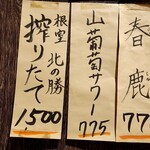 春鹿
77
山葡萄サワー
775
根室 北の勝
搾りたて
1500